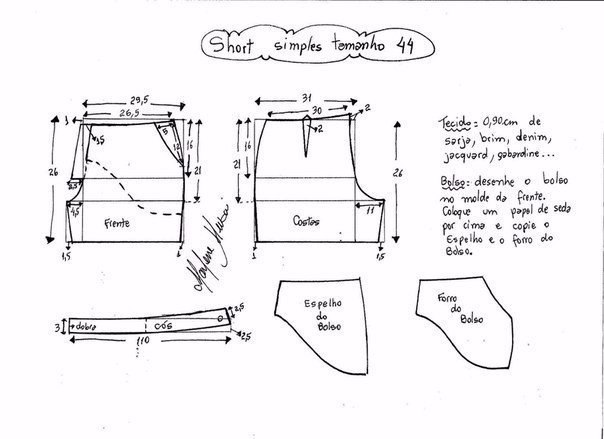 Short simples tamanho 44
29,5
26,5
1
5
12
16
21
26
1,5
3,5
4,5
Frente
1,5
1
31
30
2
2
16
21
26
11
Costas
1
1,5
Tecido: 0,90cm de
sarja, brim, denim,
jacquard, gabardine...
Bolso: desenhe o bolso
no molde da frente.
Coloque um papel de seda
por cima e copie o
Espelho e o forro do
Bolso.
3
dobra
cós
2,5
2,5
110
Espelho
do
Bolso
Forro
do
Bolso